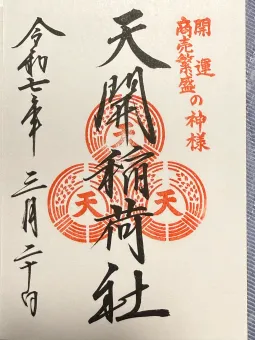 開運
商売繁盛の神様
天開稲荷社
天
天
天
令和七年 三月二十日